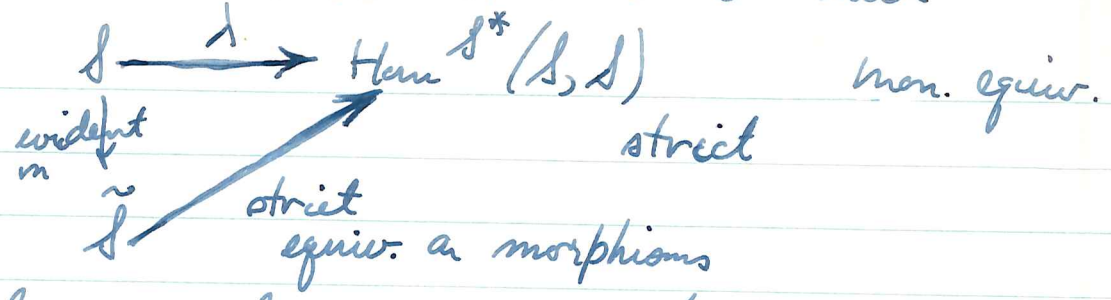 S → λ → Hom^{S*}(S, S) mon. equiv.
evident strict
m strict
S̃ equiv. on morphisms